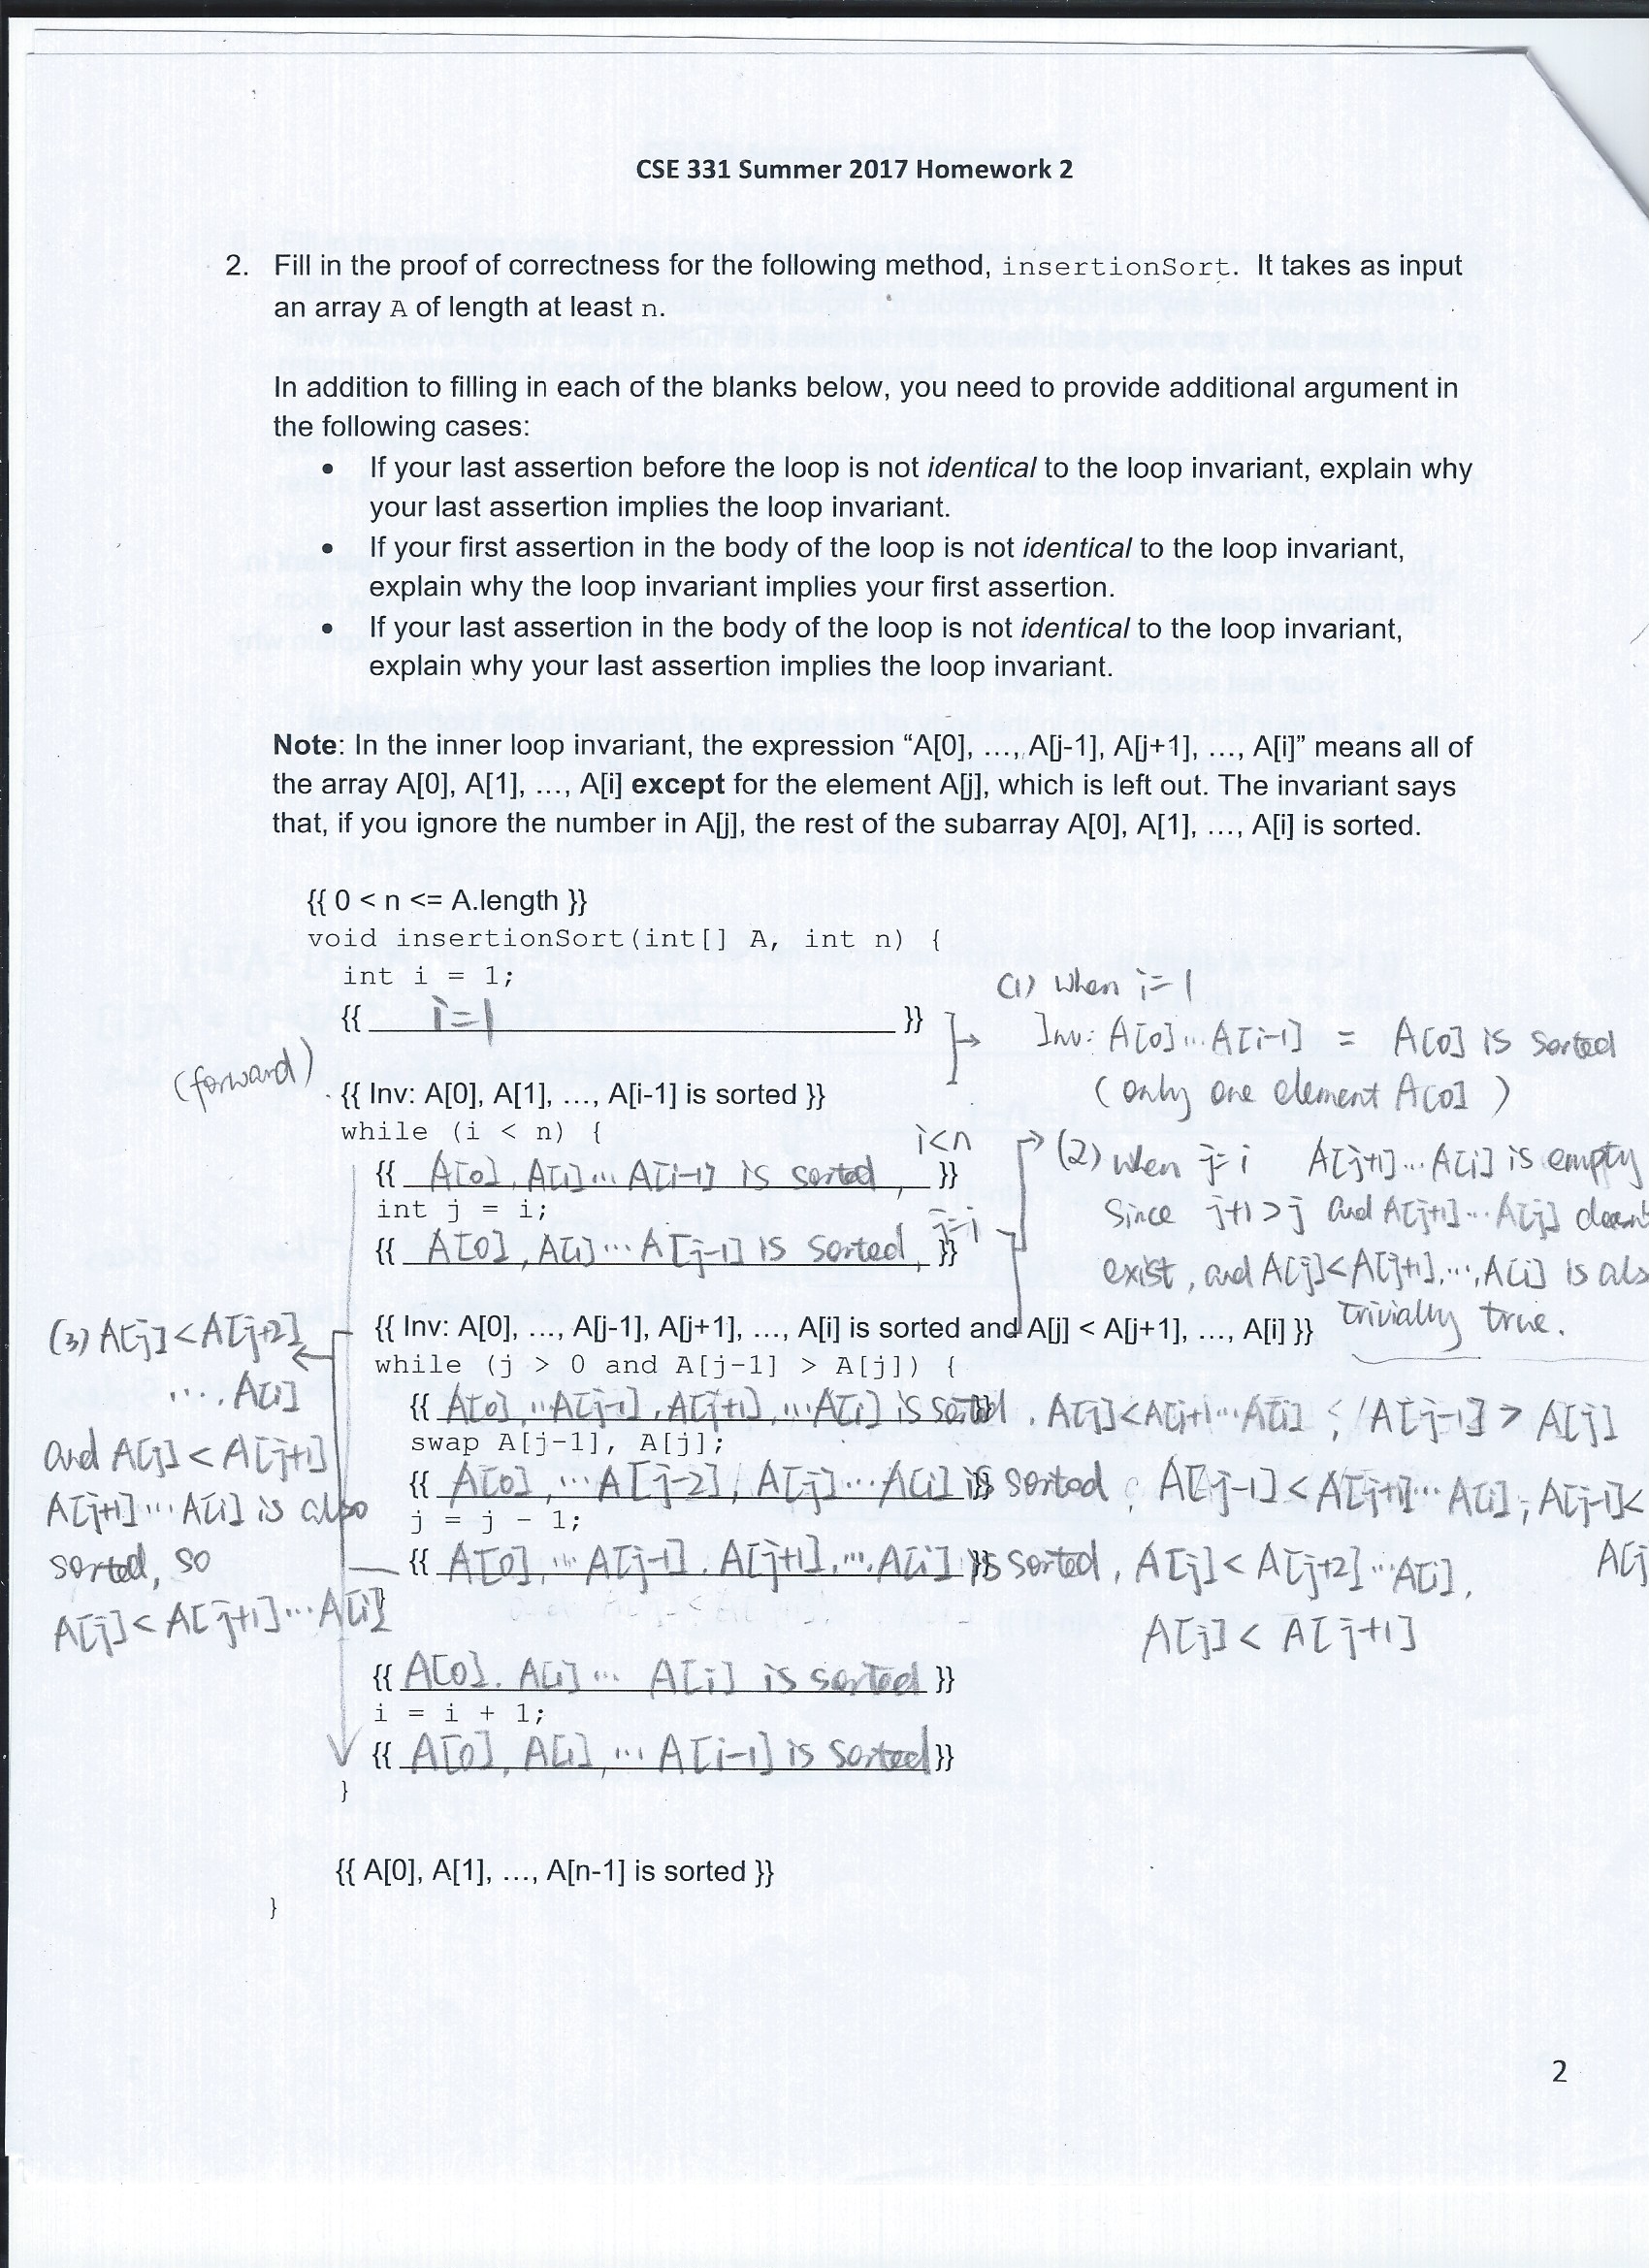 CSE 331 Summer 2017 Homework 2
2. Fill in the proof of correctness for the following method, insertionSort. It takes as input
an array A of length at least n.
In addition to filling in each of the blanks below, you need to provide additional argument in
the following cases:
• If your last assertion before the loop is not identical to the loop invariant, explain why
your last assertion implies the loop invariant.
• If your first assertion in the body of the loop is not identical to the loop invariant,
explain why the loop invariant implies your first assertion.
• If your last assertion in the body of the loop is not identical to the loop invariant,
explain why your last assertion implies the loop invariant.
Note: In the inner loop invariant, the expression “A[0], …, A[j-1], A[j+1], …, A[i]” means all of
the array A[0], A[1], …, A[i] except for the element A[j], which is left out. The invariant says
that, if you ignore the number in A[j], the rest of the subarray A[0], A[1], …, A[i] is sorted.
{{ 0 < n <= A.length }}
void insertionSort(int[] A, int n) {
int i = 1;
{{ i=1 }}
(1) when i=1
Inv: A[0]...A[i-1] = A[0] is sorted
(only one element A[0])
(forward)
{{ Inv: A[0], A[1], …, A[i-1] is sorted }}
while (i < n) {
{{ A[0], A[1]... A[i-1] is sorted, i<n }}
int j = i;
{{ A[0], A[1]... A[j-1] is sorted, j=i }}
(2) when j=i A[j+1]...A[i] is empty
since j+1>j and A[j+1]...A[j] doesn't
exist, and A[j]<A[j+1],...,A[i] is als
trivially true.
{{ Inv: A[0], …, A[j-1], A[j+1], …, A[i] is sorted and A[j] < A[j+1], …, A[i] }}
while (j > 0 and A[j-1] > A[j]) {
{{ A[0],...A[j-1],A[j+1],...A[i] is sorted }}, A[j]<A[j+1]...A[i], A[j-1]>A[j]
swap A[j-1], A[j];
{{ A[0],...A[j-2], A[j]...A[i] is }} sorted, A[j-1]<A[j+1]...A[i], A[j-1]<
A[j
j = j - 1;
{{ A[0],...A[j-1], A[j+1],...A[i] }} is sorted, A[j]<A[j+2]...A[i],
A[j] < A[j+1]
(3) A[j]<A[j+2]
...A[i]
and A[j]<A[j+1]
A[j+1]...A[i] is also
sorted, so
A[j]<A[j+1]...A[i]
}
{{ A[0], A[1]... A[i] is sorted }}
i = i + 1;
{{ A[0], A[1],... A[i-1] is sorted }}
}
{{ A[0], A[1], …, A[n-1] is sorted }}
}
2